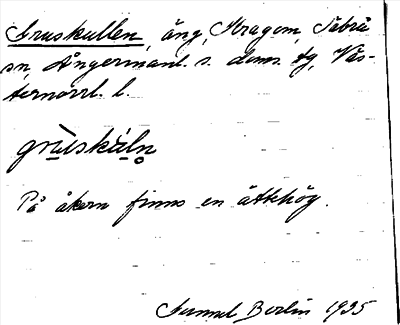 Gruskullen, äng, Kragom, Säbrå
sn, Ångermanl. s. doms. tg, Väs-
ternorrl. l.
grùskùln
På åkern finns en ättehög.
Gunnel Berlin 1935